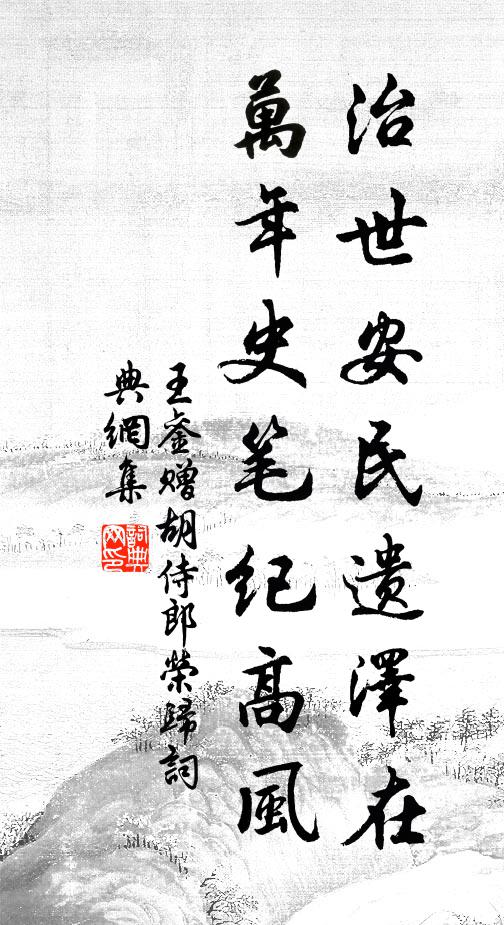 治世安民遺澤在
萬年史笔纪高風
王崟赠胡侍郎榮歸詞
典網集
詞典
网印